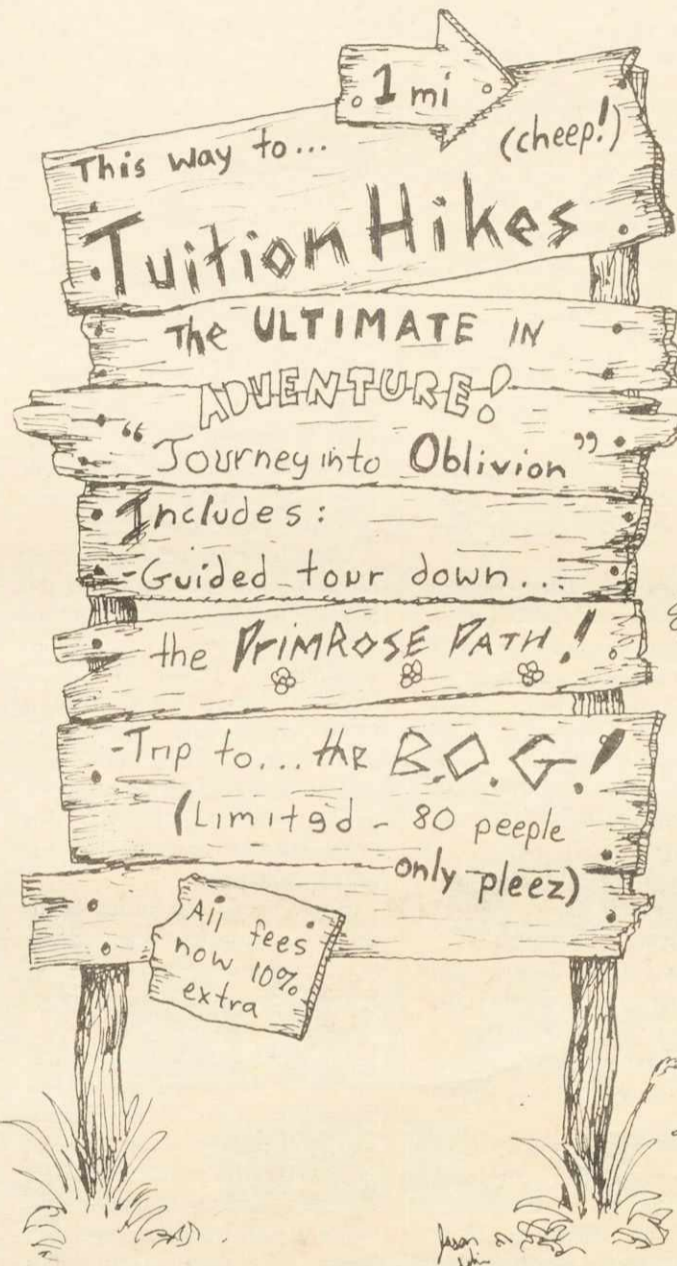 1 mi
This way to... (cheep!)
Tuition Hikes
The ULTIMATE IN
ADVENTURE!
"Journey into Oblivion"
Includes:
-Guided tour down...
the PRIMROSE PATH!
-Trip to... the B.O.G.!
(Limited - 80 peeple
only pleez)
All fees
now 10%
extra
Jason